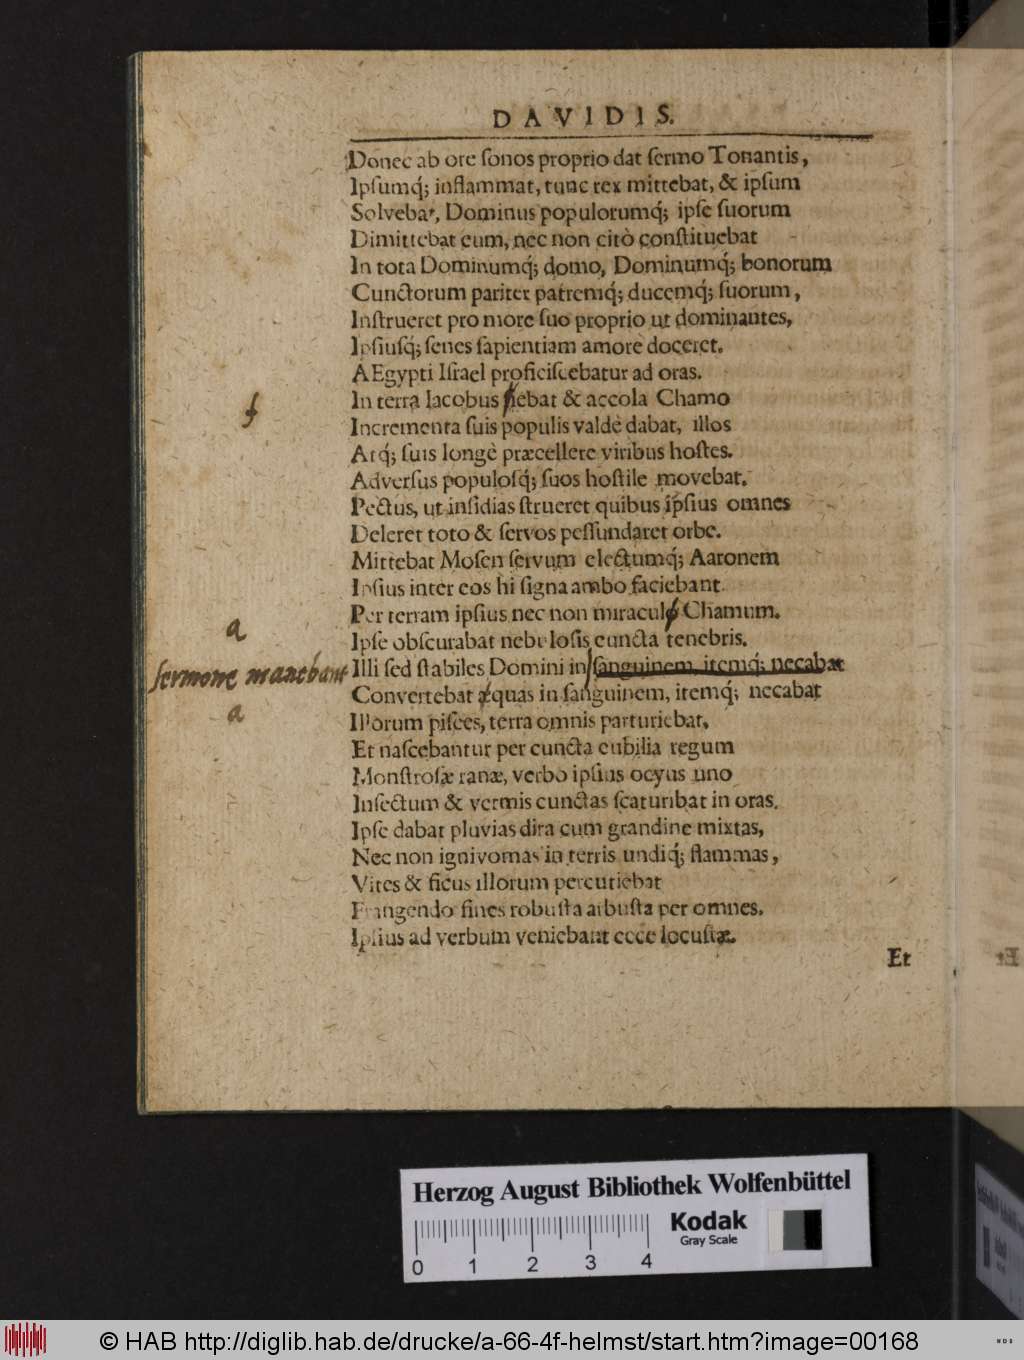 DAVIDIS.
Donec ab ore ſonos proprio dat ſermo Tonantis,
Ipſumq́; inflammat, tunc rex mittebat, & ipſum
Solvebat, Dominus populorumq́; ipſe ſuorum
Dimittebat eum, nec non citò conſtituebat
In tota Dominumq́; domo, Dominumq́; bonorum
Cunctorum pariter patremq́; ducemq́; ſuorum,
Inſtrueret pro more ſuo proprio ut dominantes,
Ipſiuſq́; ſenes ſapientiam amore doceret.
AEgypti Iſrael proficiſcebatur ad oras.
In terra Iacobus fiebat & accola Chamo
f
Incrementa ſuis populis valdè dabat, illos
Atq́; ſuis longè præcellere viribus hoſtes.
Adverſus populoſq́; ſuos hoſtile movebat.
Pectus, ut inſidias ſtrueret quibus ipſius omnes
Deleret toto & ſervos peſſundaret orbe.
Mittebat Moſen ſervum electumq́; Aaronem
Ipſius inter eos hi ſigna ambo faciebant.
Per terram ipſius nec non miracula Chamum.
a
Ipſe obſcurabat nebuloſis cuncta tenebris.
Illi ſed ſtabiles Domini in ſanguinem, itemq́; necabat
ſermone manebant
Convertebat aquas in ſanguinem, itemq́; necabat
a
Illorum piſces, terra omnis parturiebat,
Et naſcebantur per cuncta cubilia regum
Monſtroſæ ranæ, verbo ipſius ocyus uno
Inſectum & vermis cunctas ſcaturibat in oras.
Ipſe dabat pluvias dira cum grandine mixtas,
Nec non ignivomas in terris undiq́; flammas,
Vites & ficus illorum percutiebat
Frangendo fines robuſta arbuſta per omnes.
Ipſius ad verbum veniebant ecce locuſtæ.
Et
Herzog August Bibliothek Wolfenbüttel
Kodak
Gray Scale
0 1 2 3 4
© HAB http://diglib.hab.de/drucke/a-66-4f-helmst/start.htm?image=00168